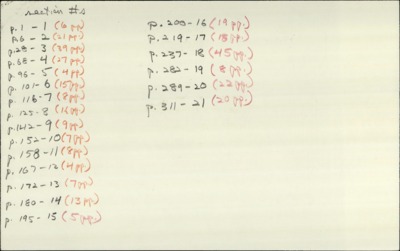 section #s
p.1 - 1 (6 pp.)
p.6 - 2 (21 pp.)
p.28 - 3 (39 pp.)
p.68 - 4 (27 pp.)
p.96 - 5 (4 pp.)
p.101 - 6 (15 pp.)
p.116 - 7 (8 pp.)
p.125 - 8 (16 pp.)
p.142 - 9 (9 pp.)
p.152 - 10 (7 pp.)
p.158 - 11 (8 pp.)
p.167 - 12 (4 pp.)
p.172 - 13 (7 pp.)
p.180 - 14 (13 pp.)
p.195 - 15 (5 pp.)
p.200 - 16 (19 pp.)
p.219 - 17 (18 pp.)
p.237 - 18 (45 pp.)
p.282 - 19 (8 pp.)
p.289 - 20 (22 pp.)
p.311 - 21 (20 pp.)